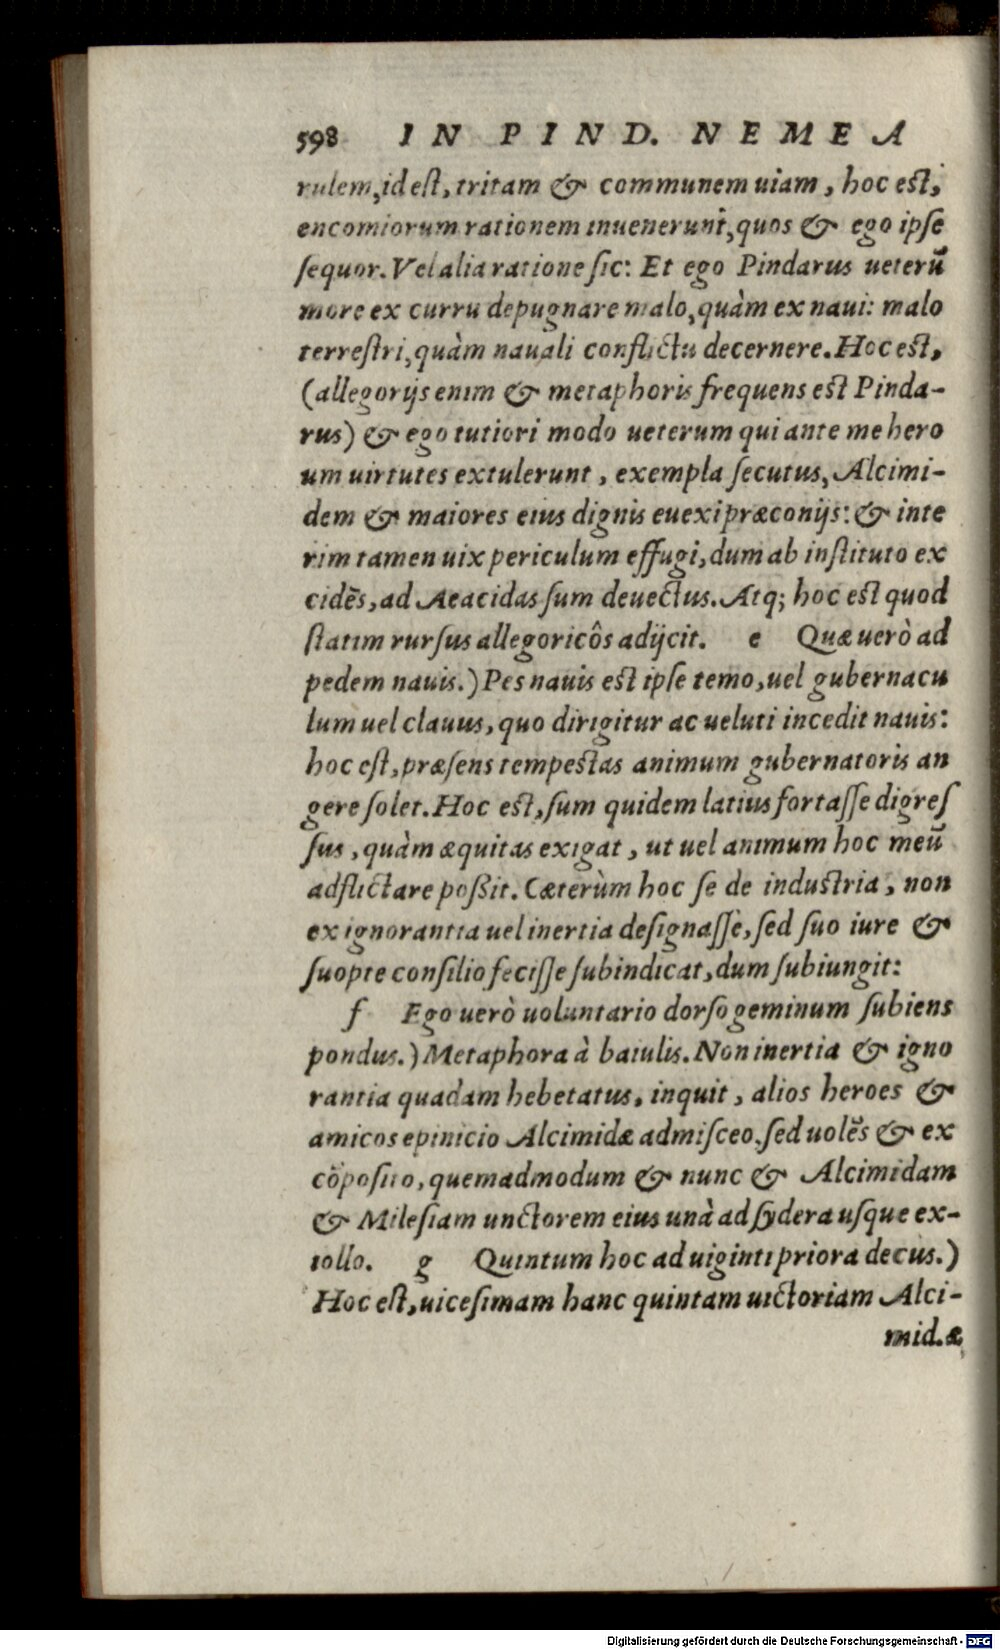 598 IN PIND. NEMEA
rulem, id est, tritam & communem uiam, hoc est,
encomiorum rationem inuenerunt, quos & ego ipse
sequor. Vel alia ratione sic: Et ego Pindarus ueterũ
more ex curru depugnare malo, quàm ex naui: malo
terrestri, quàm nauali conflictu decernere. Hoc est,
(allegorijs enim & metaphoris frequens est Pinda-
rus) & ego tutiori modo ueterum qui ante me hero
um uirtutes extulerunt, exempla secutus, Alcimi-
dem & maiores eius dignis euexi præconijs: & inte
rim tamen uix periculum effugi, dum ab instituto ex
cidẽs, ad Aeacidas sum deuectus. Atq; hoc est quod
statim rursus allegoricôs adijcit. e Quæ uerò ad
pedem nauis.) Pes nauis est ipse temo, uel gubernacu
lum uel clauus, quo dirigitur ac ueluti incedit nauis:
hoc est, præsens tempestas animum gubernatoris an
gere solet. Hoc est, sum quidem latius fortasse digres
sus, quàm æquitas exigat, ut uel animum hoc meũ
adflictare poßit. Cæterùm hoc se de industria, non
ex ignorantia uel inertia designasse, sed suo iure &
suopte consilio fecisse subindicat, dum subiungit:
f Ego uerò uoluntario dorso geminum subiens
pondus.) Metaphora à baiulis. Non inertia & igno
rantia quadam hebetatus, inquit, alios heroes &
amicos epinicio Alcimidæ admisceo, sed uolẽs & ex
cõposito, quemadmodum & nunc & Alcimidam
& Milesiam unctorem eius unà ad sydera usque ex-
tollo. g Quintum hoc ad uiginti priora decus.)
Hoc est, uicesimam hanc quintam uictoriam Alci-
mid.æ
Digitalisierung gefördert durch die Deutsche Forschungsgemeinschaft - DFG